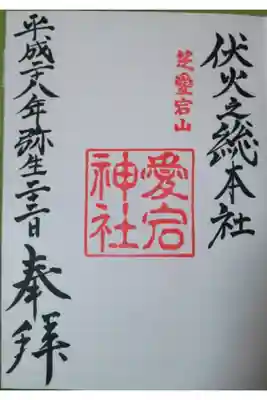 伏火之総本社
芝愛宕山
愛宕
神社
奉拝
平成二十八年弥生二十二日